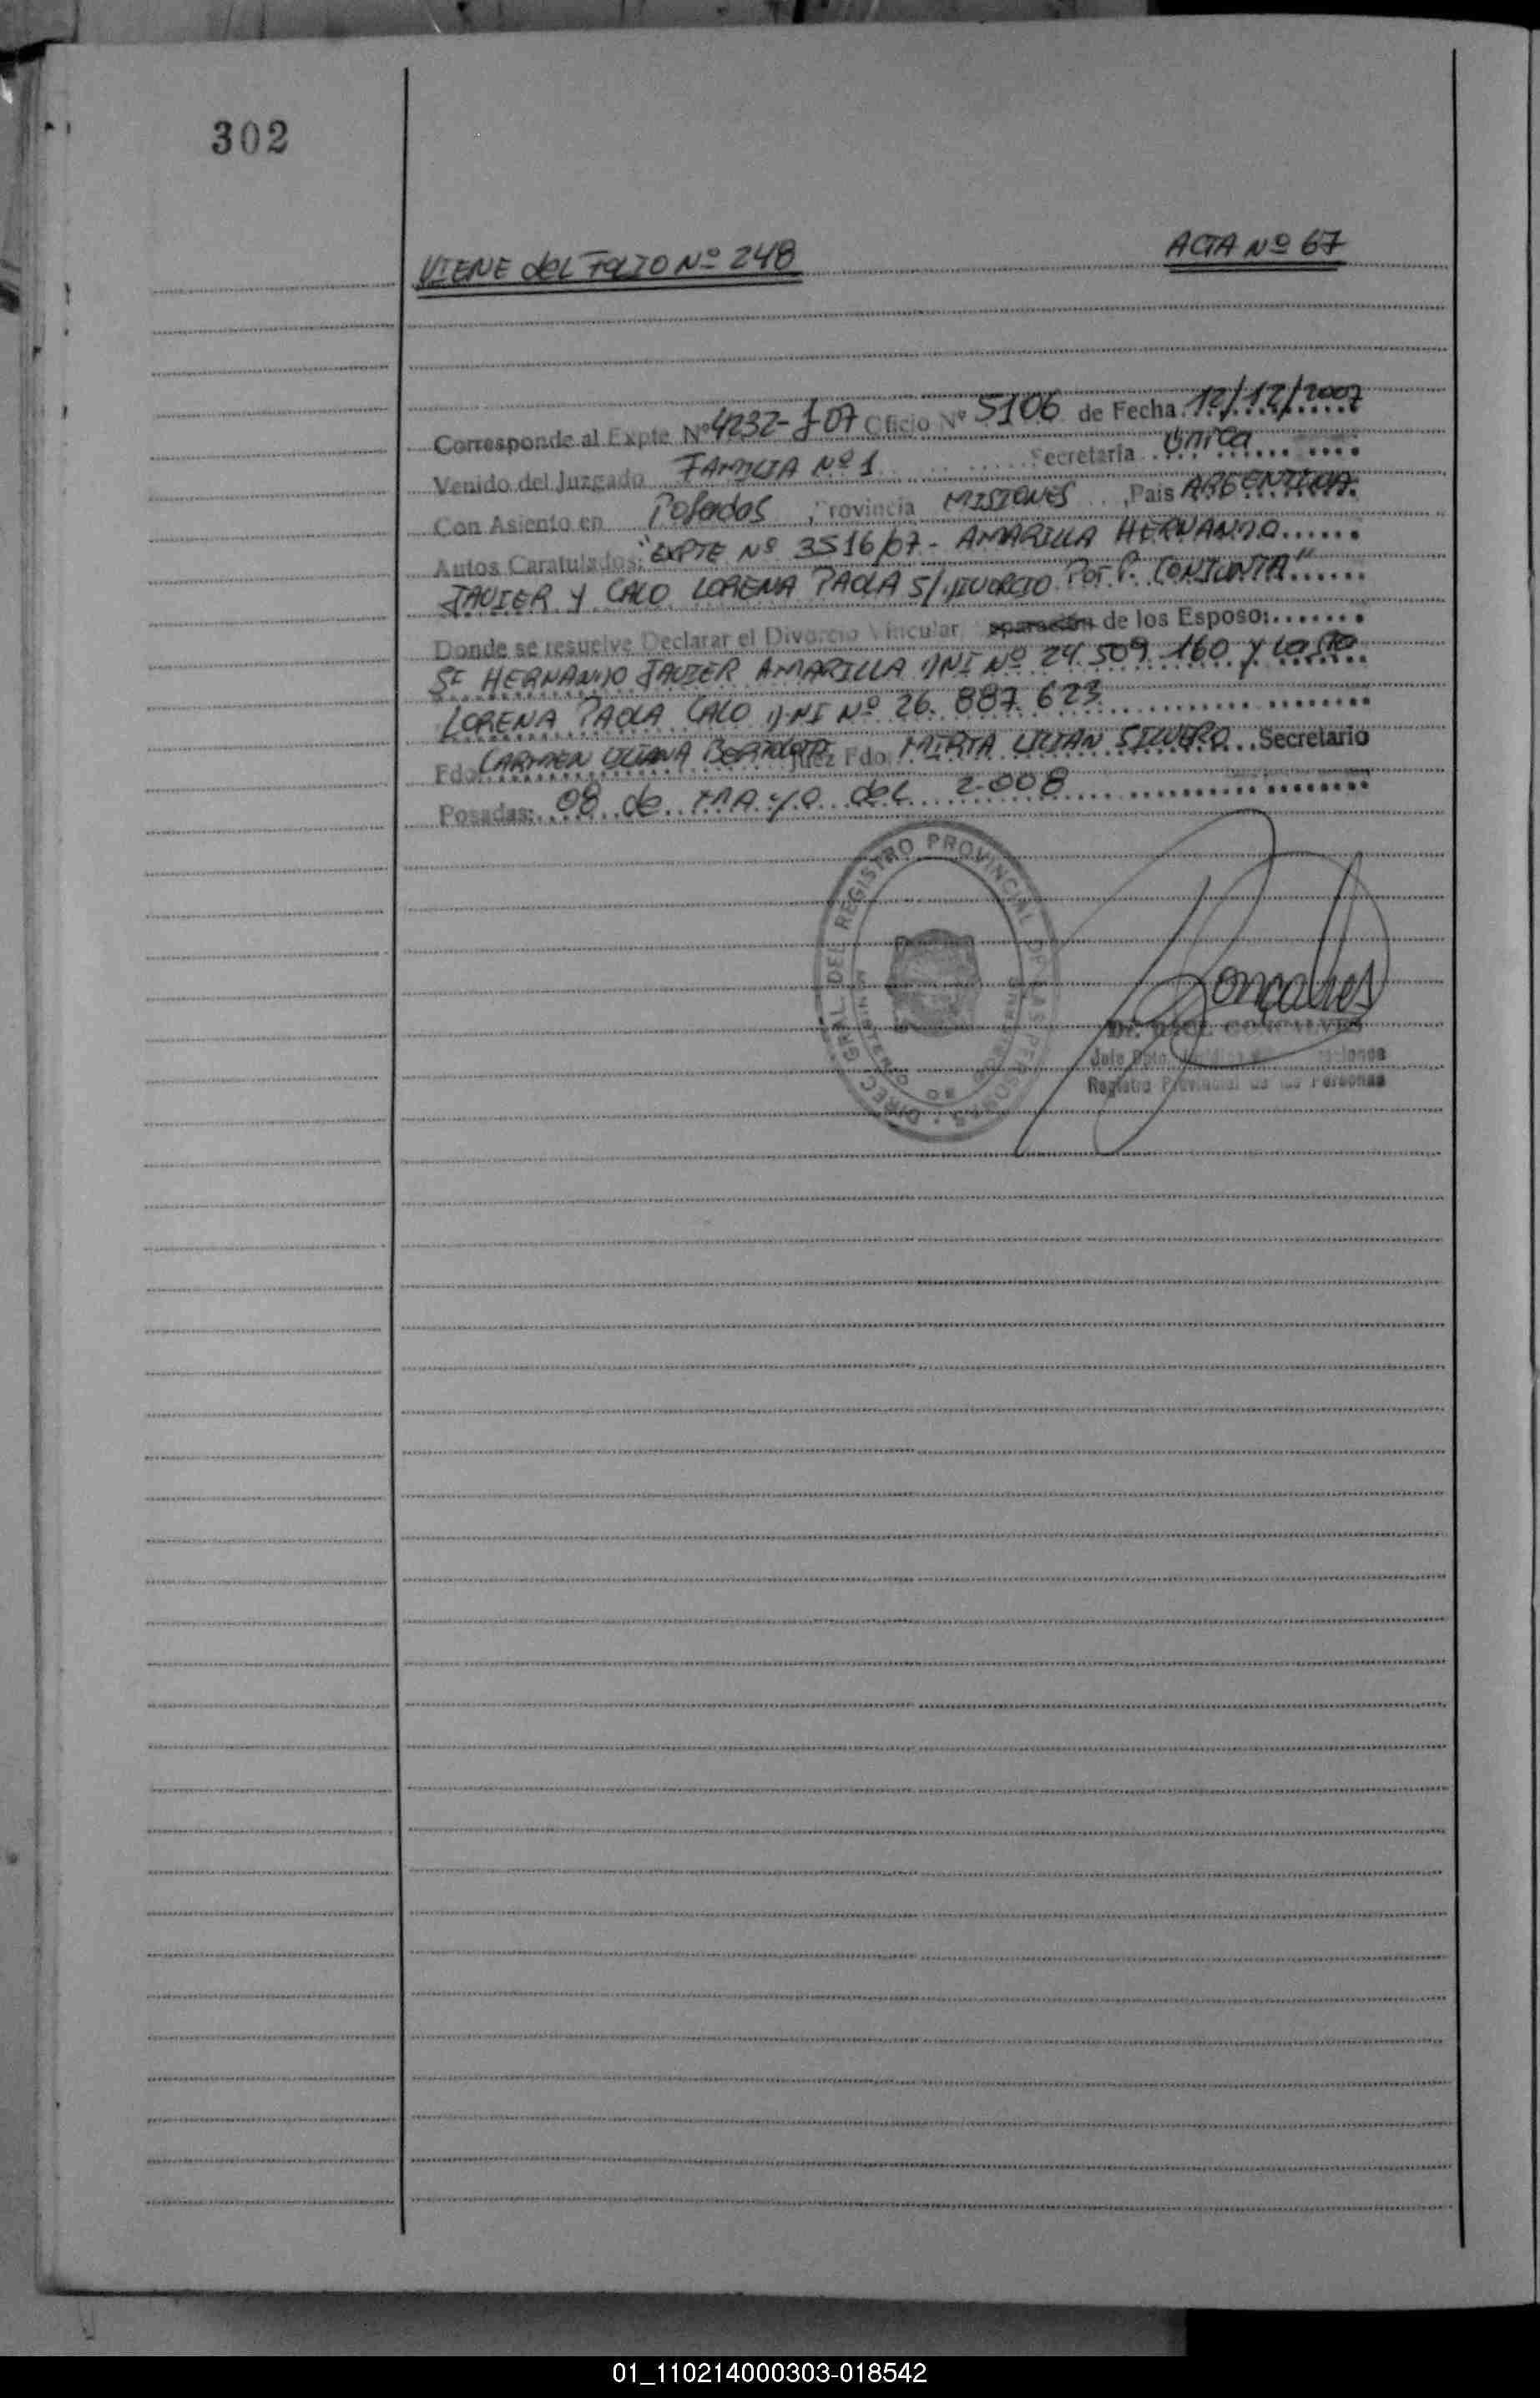 302
VIENE del FOLIO Nº 248 ACTA Nº 67
Corresponde al Expte Nº 4232-J-07 Oficio Nº 5106 de Fecha 12/12/2007
Venido del Juzgado FAMILIA Nº 1 Secretaria única
Con Asiento en Posadas, Provincia MISIONES, Pais ARGENTINA.
Autos Caratulados: "EXPTE Nº 3516/07 - AMARILLA HERNANDO
JAVIER Y CALO LORENA PAOLA S/. DIVORCIO POr P. CONJUNTA"
Donde se resuelve Declarar el Divorcio Vincular, separación de los Esposo:
Sr HERNANDO JAVIER AMARILLA DNI Nº 24.509.160 y la Sra
LORENA PAOLA CALO DNI Nº 26.887.623
Fdo: CARMEN Juez Fdo. MIRTA LILIAN SILVERO Secretario
Posadas: 08 de MAYO del 2.008
DIRECC. GRAL. DEL REGISTRO PROVINCIAL DE LAS PERSONAS
MINISTERIO DE GOBIERNO
Goncalves
GONCALVES
Jefe Dpto.
Registro Provincial de las Personas
01_110214000303-018542